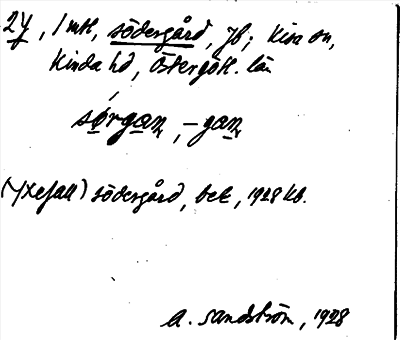 24, 1 mtl, södergård, jb; Kisa sn,
Kinda hd, Östergötl. län
sørgan, -gan
(Yxefall) södergård, bet, 1928 kb.
A. Sandström, 1928